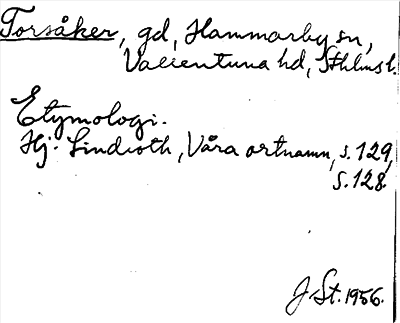 Torsåker, gd, Hammarby sn,
Vallentuna hd, Sthlms l.
Etymologi.
Hj. Lindroth, Våra ortnamn, s. 129,
s. 128.
J. St. 1956.